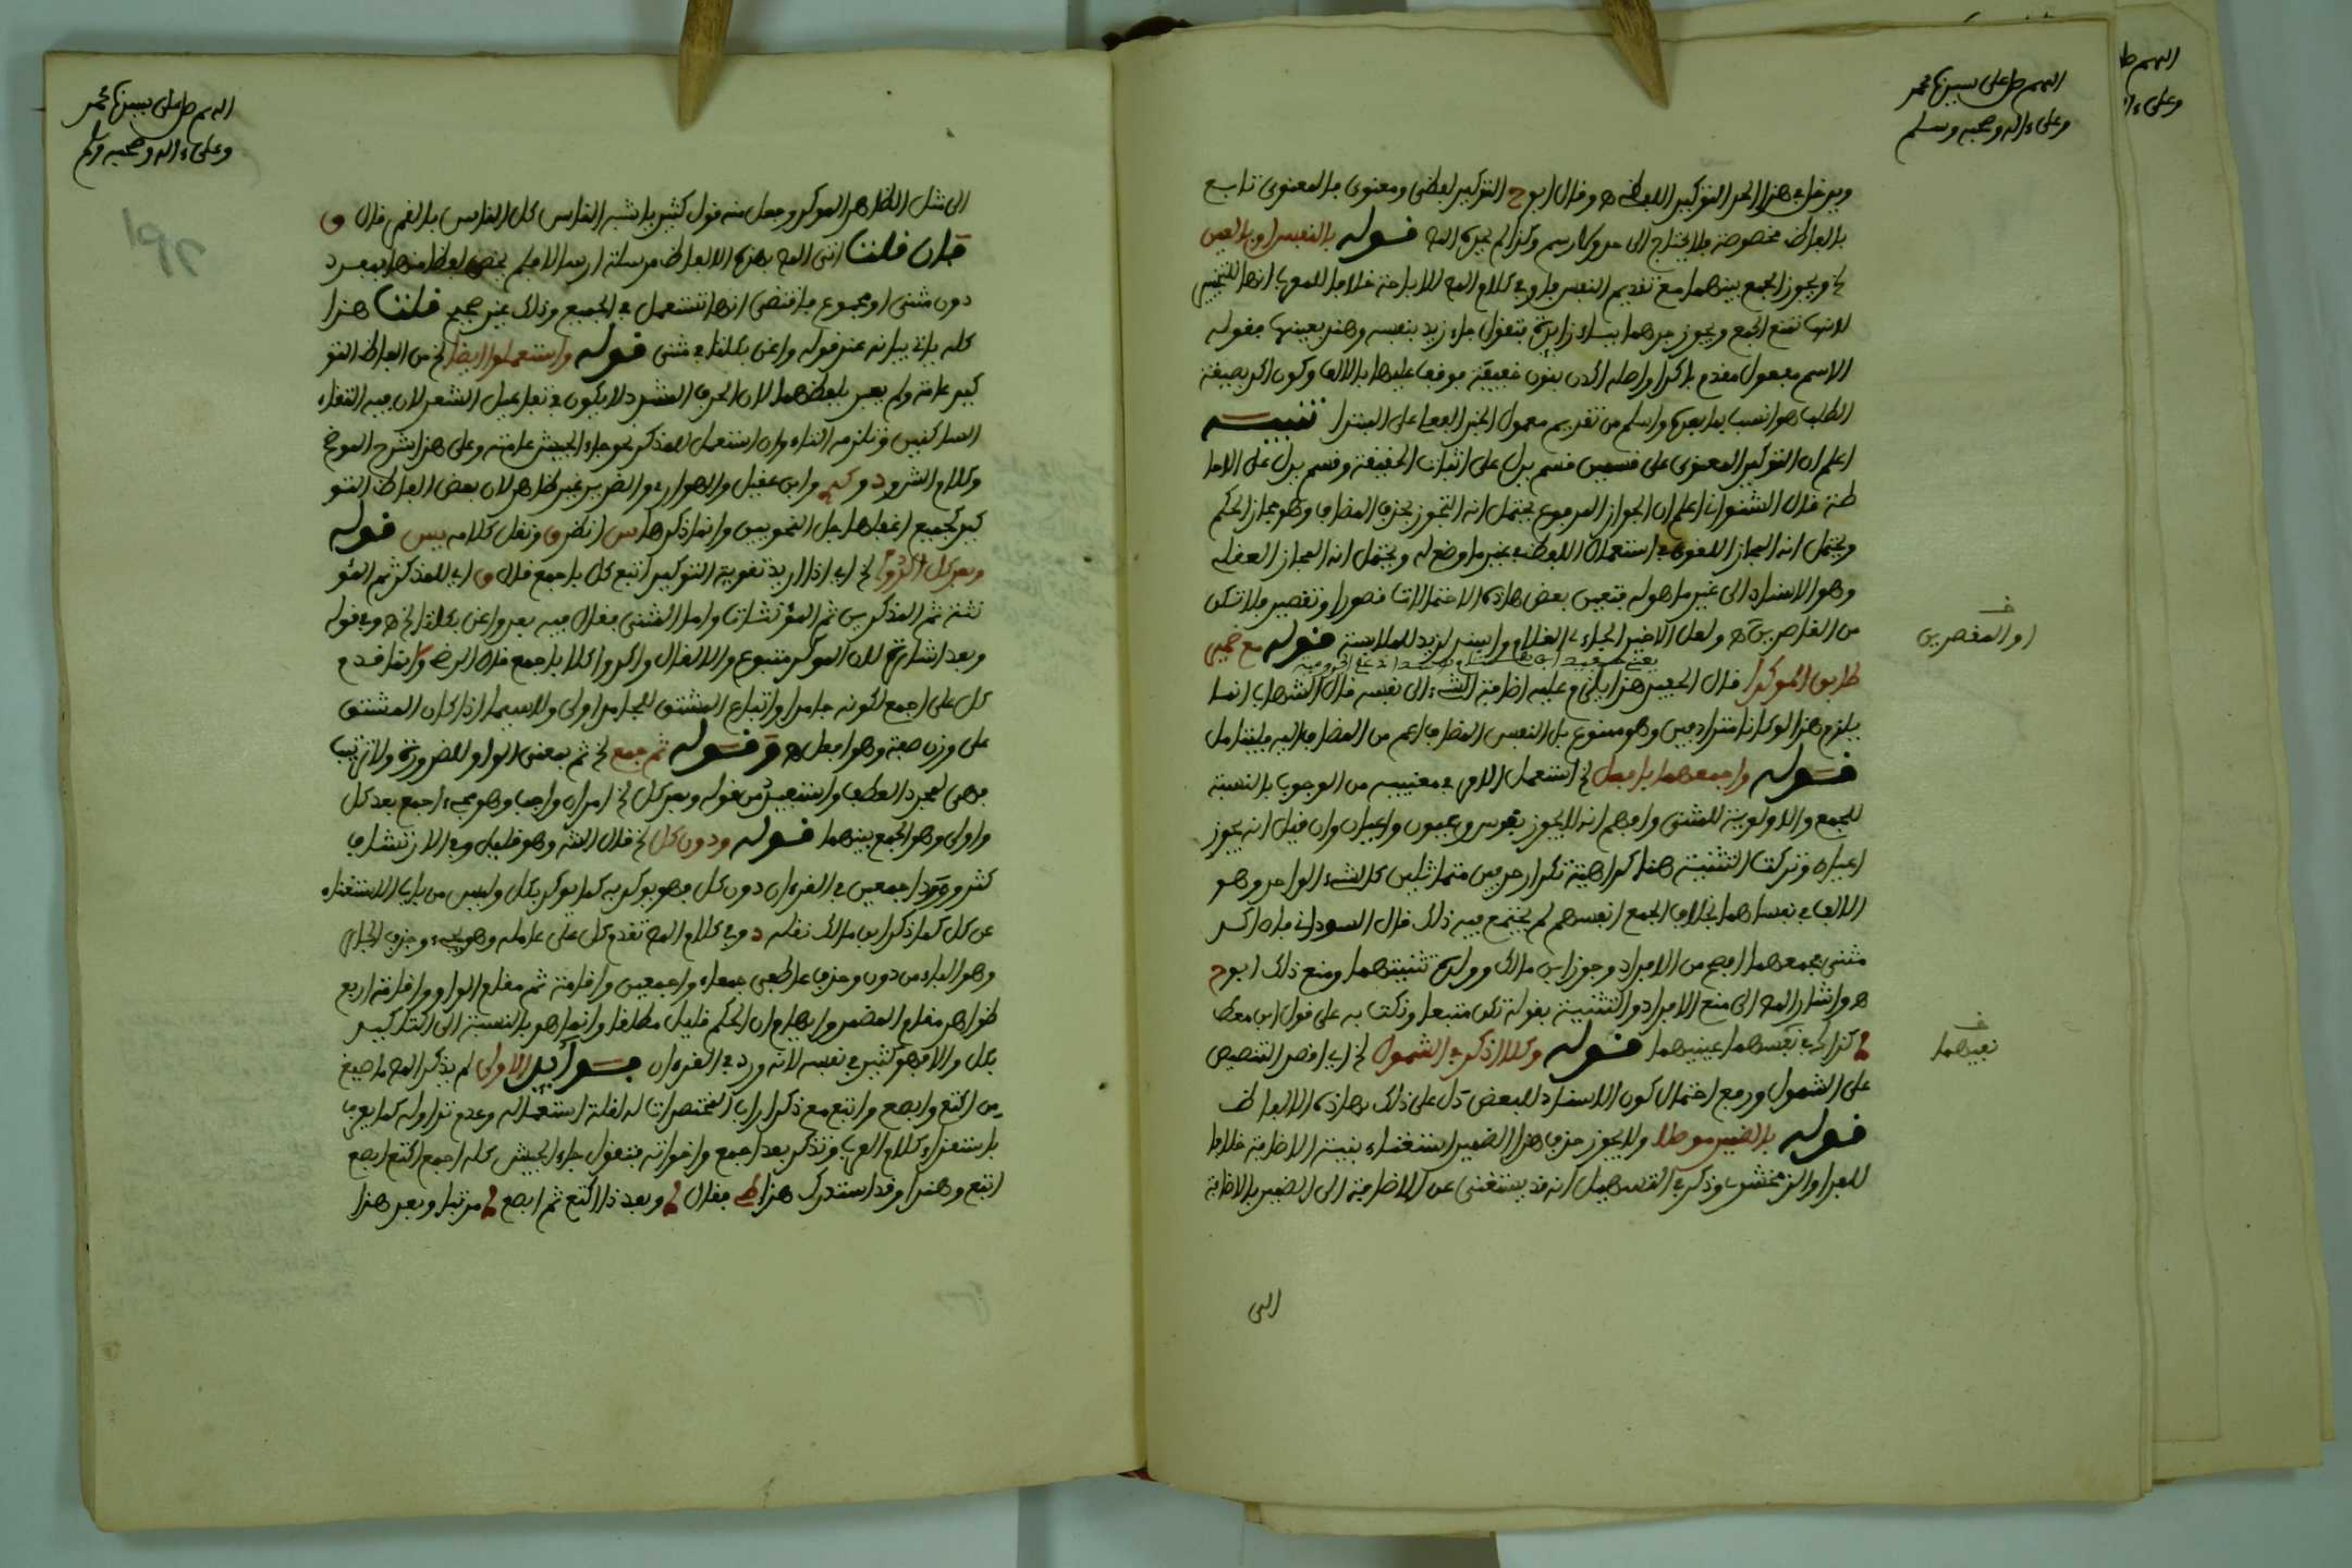 اللهم صل على سيدنا محمد
وعلى ءاله وصحبه وسلم
ويدخل في هذا الحد التوكيد اللفظي ه وقال ابوح التوكيد لفظي ومعنوي فالمعنوي تابع
بالفاظ مخصوصة فلا يحتاج الى حد ولا رسم وكذا لم يحده المص قوله بالنفس او بالعين
لخ ويجوز الجمع بينهما مع تقديم النفس فاو في كلام المص للاباحة خلافا للمعرب انها للتخيير
لانها تمنع الجمع ويجوز جرهما بباء زائدة فتقول جاء زيد بنفسه وهند بعينها فقوله
الاسم مفعول مقدم باكدا واصله اكدن بنون خفيفة فوقف عليها بالالف وكون اكد بصيغة
الطلب هو انسب بما بعده واسلم من تقديم معمول الخبر الفعلي على المبتدا تنبيه
اعلم ان التوكيد المعنوي على قسمين قسم يدل على اثبات الحقيقة وقسم يدل على الاحا
طة قال الشنواني اعلم ان الجواز المرفوع يحتمل انه التجوز بحذف المضاف وهو مجاز الحكم
ويحتمل انه المجاز اللغوي في استعمال اللفظ في غير ما وضع له ويحتمل انه المجاز العقلي
وهو الاسناد الى غير ما هو له فتعين بعض هاذه الاحتمالات قصور او تقصير فلا تكن
من القاصرين ه ولعل الاخير الجاء غلام واسند لزيد للملابسة قوله مع ضمير
او المقصرين
طابق المؤكدا قال الحفيد هذا يلزم عليه اضافة الشيء الى نفسه قال الشهاب انما
يلزم هذا لو كانا مترادفين وهو ممنوع بل النفس المضاف اعم من المضاف اليه فليتامل
قوله واجمعهما بافعل لخ استعمل الامر في معنييه من الوجوب بالنسبة
للجمع والاولوية للمثنى وافهم انه لا يجوز نفوس وعيون واعيان وان قيل انه يجوز
اعيانه وتركت التثنية هنا كراهية تكرار حرفين متماثلين كالشيء الواحد وهو
الالف في نفساهما بخلاف الجمع انفسهم لم يجتمع فيه ذلك قال السوداني فان اكد
مثنى فجمعهما افصح من الافراد وجوز ابن مالك وولده تثنيتهما ومنع ذلك ابوح
ه واشار المص الى منع الافراد والتثنية بقوله تكن متبعا ونكت به على قول ابن معط
كذاك في نفسهما عينيهما قوله وكلا اذكر في الشمول لخ اي اقصد التنصيص
نفسهما
على الشمول ورفع احتمال كون الاسناد للبعض دل على ذلك بهاذه الالفاظ
قوله بالضمير موصلا ولا يجوز حذف هذا الضمير استغناء بنية الاضافة خلافا
للفراء والزمخشري وذكر في التسهيل انه قد يستغنى عن الاضافة الى الضمير بالاضافة
الى
اللهم صل على سيدنا محمد
وعلى ءاله وصحبه وسلم
الى مثل الظاهر المؤكد وجعل منه قول كثير يا اشبه الناس كل الناس بالقمر قال ق
فان قلت اتى المص بهذه الالفاظ مرسلة ارسالا فلم يخص لفظا منها بمفرد
دون مثنى او مجموع فاقتضى انها تستعمل في الجميع وذلك غير صحيح قلت هذا
كله ياتي بيانه عند قوله واغن بكلتا في مثنى قوله واستعملوا ايضا لخ من الفاظ التو
كيد عامة ولم يعبر بلفظهما لان الحرف المشدد لا يكون في تفاعيل الشعر لان فيه التقاء
الساكنين وتلزمه التاء وان استعمل للمذكر نحو جاء الجيش عامته وعلى هذا شرح الموضح
وابن عقيل والهواري والضرير غير ظاهر لان بعض الفاظ التو
كيد كجميع اغفلها جل النحويين وانما ذكرها س انظر ق ونقل كلامه يس قوله
وبعد كل اكدوا لخ اي اذا اريد تقوية التوكيد اتبع كل باجمع قال ق اي للمذكر ثم المؤ
نثة ثم المذكرين ثم المؤنثات واما المثنى فقال فيه بعد واغن بكلتا لخ ه وفي قوله
وبعد اشارة لان المؤكد متبوع والا لقال واكدوا كلا باجمع قال الرضي وانما قدم
كل على اجمع لكونه جامدا واتباع المشتق للجامد اولى ولاسيما اذا كان المشتق
على وزن صفة وهو افعل ه وقوله ثم جمع لخ ثم بمعنى الواو للضرورة ولا ترتيب
فهي لمجرد العطف واستفيد من قوله وبعد كل لخ امران واجب وهو مجيء اجمع بعد كل
واولى وهو الجمع بينهما قوله ودون كل لخ قال الش وهو قليل وفي الارتشاف
كثر وروود اجمعين في القرءان دون كل فهو يوكد به كما يوكد بكل وليس من باب الاستغناء
عن كل كما ذكر ابن مالك نقله د وفي كلام المص تقدم كل على عامله وهو يجيء وحذف الجار
وهو الباء من دون وحذف عاطفي جمعاء واجمعين واقامة ثم مقام الواو واقامة اربع
ظواهر مقام المضمر وايهام ان الحكم قليل مطلقا وانما هو بالنسبة الى التاكيد
بكل والا فهو كثير في نفسه لانه ورد في القرءان فوائد الاولى لم يذكر المص ما صيغ
من اكتع وابصع وابتع مع ذكر ارباب المختصرات له لقلة استعماله وعدم تداوله كما يعرف
باستقراء كلام العرب وتذكر بعد اجمع واخواته فتقول جاء الجيش كله اجمع اكتع ابصع
ابتع وهندا وقد استدرك هذا ط فقال وبعد ذا اكتع ثم ابصع مرتبا وبعد هذا